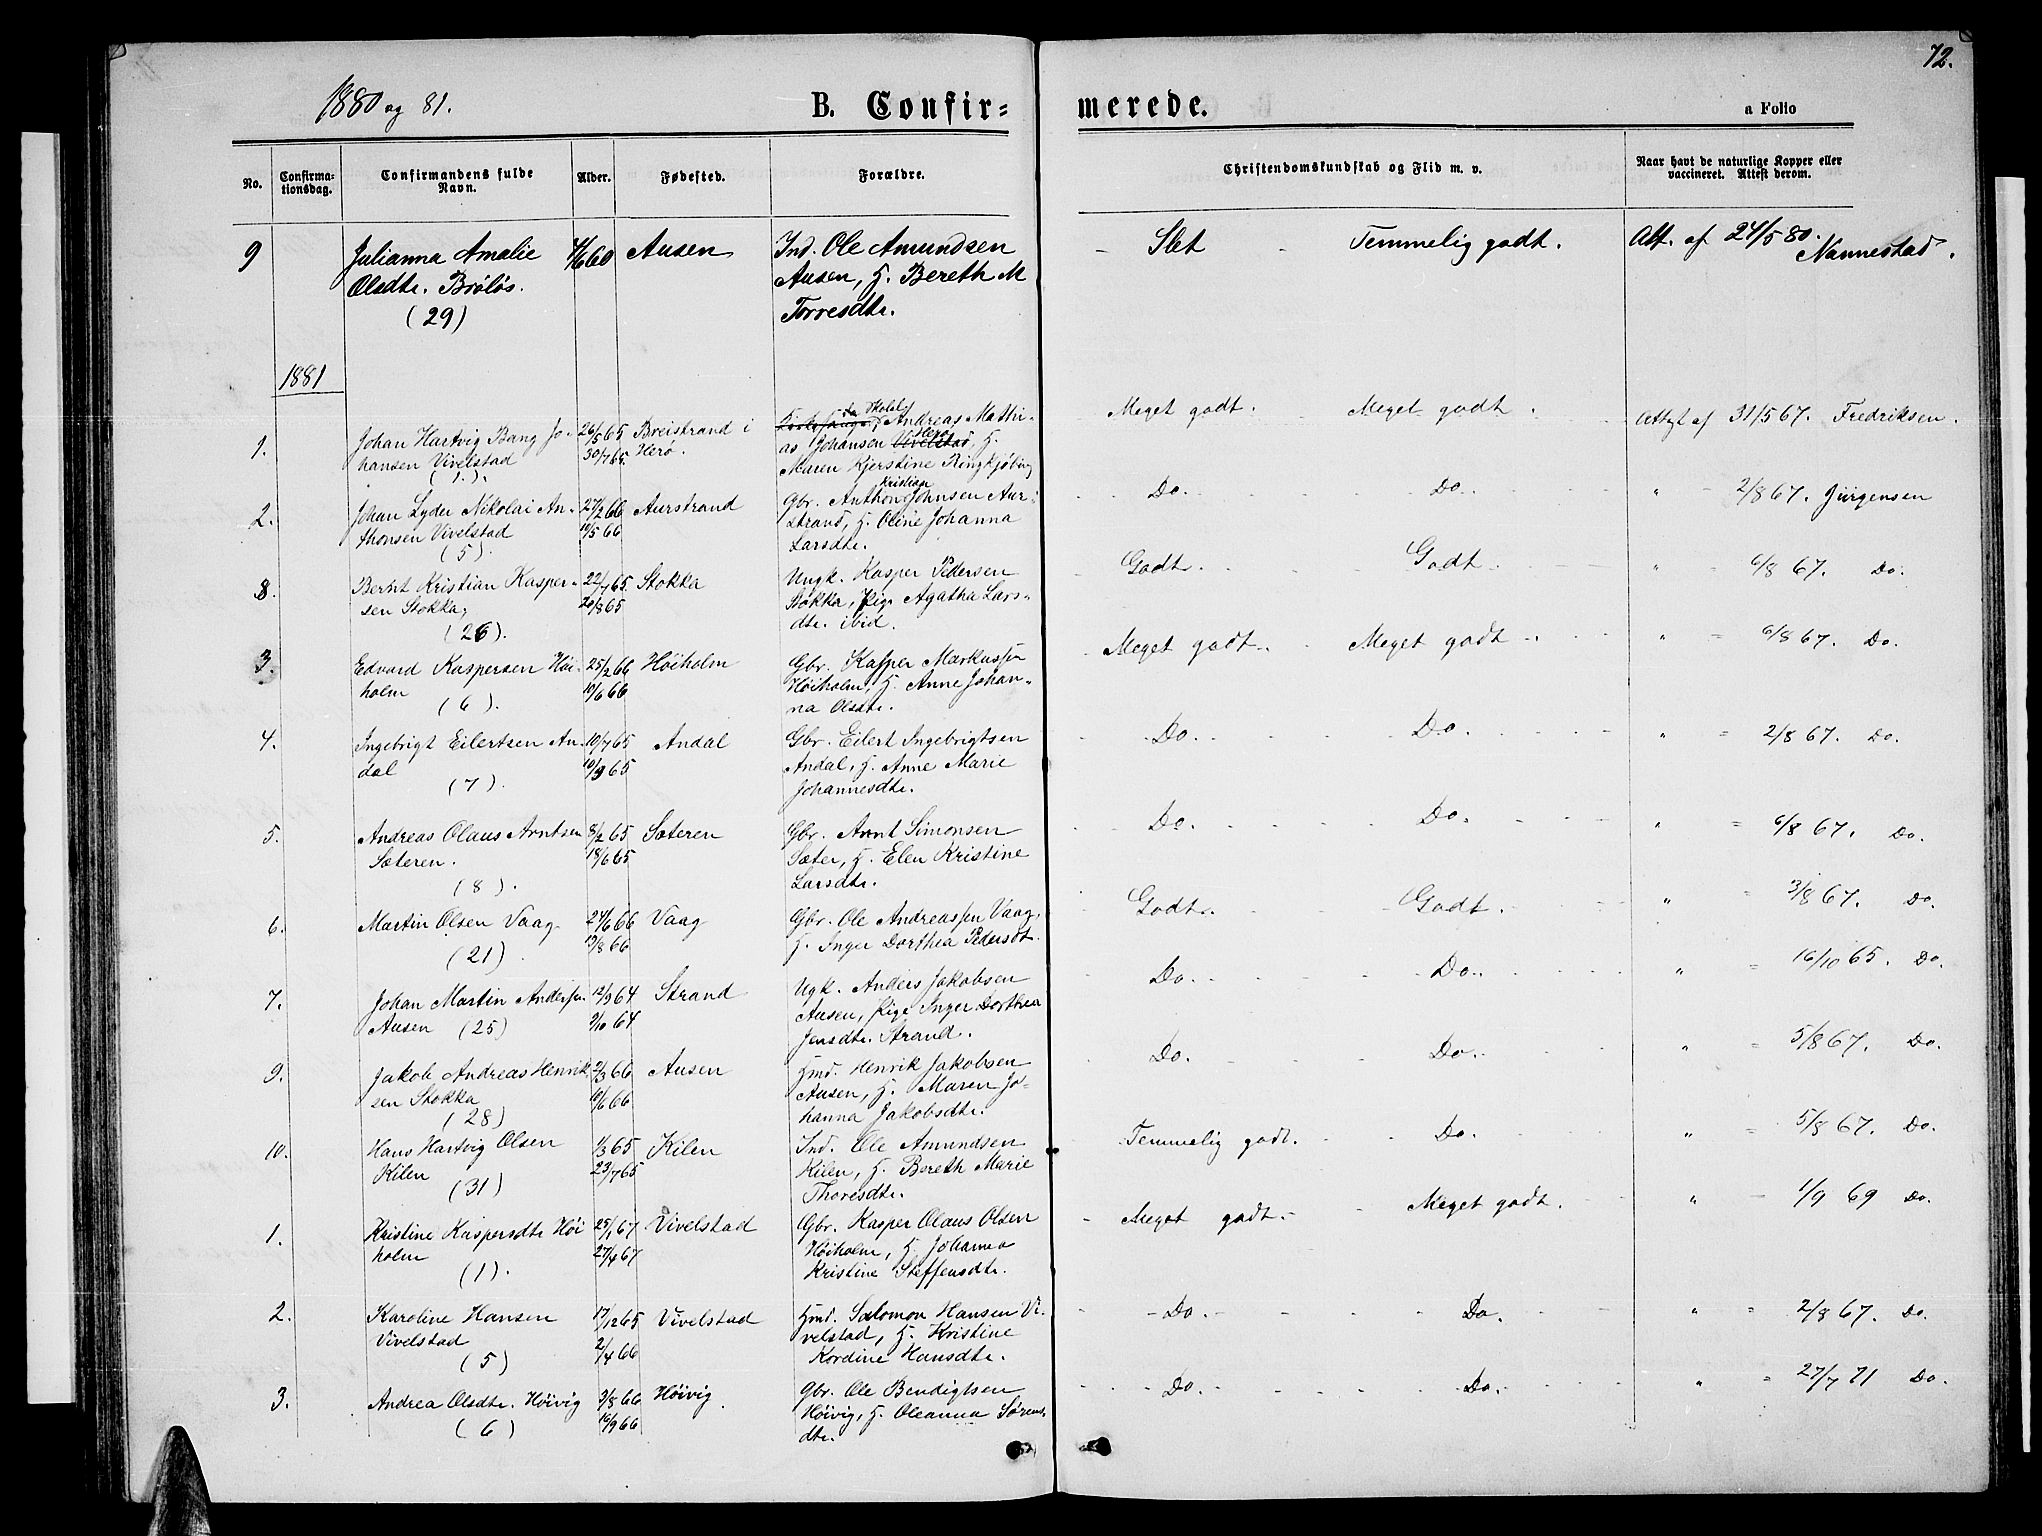 72.
1880 og 81.
B. Confir=
merede.
a Folio
No.
Confirma-
tionsdag.
Confirmandens fulde
Navn.
Alder.
Fødested.
Forældre.
Christendomskundskab og Flid m. v.
Naar havt de naturlige Kopper eller
vaccineret. Attest derom.
9 Julianna Amalie 4/6 60 Ausen Ind. Ole Amundsen - Slet - Temmelig godt. Att. af 24/5 80.
Olsdtr. Brøløs. Ausen, H. Bereth M Nannestad.
(29) Torresdtr.
1881
1. Johan Hartvig Bang Jo- 26/5 65 Breistrand i Kirkesanger, Andreas Mathi- Meget godt. Meget godt. Attest af 31/5 67. Fredriksen.
hansen Vivelstad 30/7 65. Herø. as Johansen Vivelstad, Herø H.
(1.). Maren Kjerstine Ringkjøbing
2. Johan Lyder Nikolai An- 27/2 66 Aurstrand Gbr. Anthon Kristian Johnsen Aur- Do. Do. " 2/8 67. Jürgensen
thonsen Vivelstad 10/5 66 strand, H. Oline Johanna
(5). Larsdtr.
8. Bernt Kristian Kasper- 22/7 65. Stokka Ungk. Kasper Pedersen Godt. Godt. " 6/8 67. Do.
sen Stokka, 20/8 65 Stokka, Pige Agatha Lars-
(26). dtr. ibid.
3. Edvard Kaspersen Høi- 25/2 66 Høiholm Gbr. Kasper Markussen Meget godt. Meget godt. " 6/8 67. Do.
holm 10/6 66 Høiholm, H. Anne Johan-
(6). na Olsdtr.
4. Ingebrigt Eilertsen An- 10/7 65 Andal Gbr. Eilert Ingebrigtsen Do. Do. " 2/8 67. Do.
dal 10/9 65 Andal, H. Anne Marie
(7). Johannesdtr.
5. Andreas Olaus Arntsen 8/2 65 Sæteren Gbr. Arnt Simonsen Do. Do. " 6/8 67. Do.
Sæteren. 18/6 65 Sæter, H. Elen Kristine
(8). Larsdtr.
6. Martin Olsen Vaag 24/6 66 Vaag Gbr. Ole Andreassen Vaag, Godt. Godt. " 3/8 67. Do.
(21). 13/8 66 H. Inger Dorthea Pedersdt.
7. Johan Martin Andersen 12/9 64 Strand Ugk. Anders Jakobsen Do. Do. " 16/10 65. Do.
Ausen (25) 9/10 64 Ausen, Pige Inger Dorthea
Jensdtr. Strand.
9. Jakob Andreas Henrik 2/3 66 Ausen Hmd. Henrik Jakobsen Do. Do. " 5/8 67. Do.
sen Stokka 10/6 66 Ausen, H. Maren Jo-
(28) hanna Jakobsdtr.
10. Hans Hartvig Olsen 1/3 65 Kilen Ind. Ole Amundsen Temmelig godt. Do. " 5/8 67. Do.
Kilen 23/7 65 Kilen, H. Bereth Marie
(31) Thoresdtr.
1. Kristine Kaspersdtr Høi 25/1 67 Vivelstad Gbr. Kasper Olaus Olsen Meget godt. Meget godt. " 1/9 69 Do.
holm 27/4 67 Høiholm, H. Johanna
(1). Kristine Steffensdtr.
2. Karoline Hansen 17/12 65 Vivelstad Hmd. Salomon Hansen Vi- Do. Do. " 2/8 67. Do.
Vivelstad 2/4 66 velstad, H. Kristine
(5) Kordine Hansdtr.
3. Andrea Olsdtr. Høivig 3/8 66 Høivig Gbr. Ole Bendigtsen Do. Do. " 27/7 71 Do.
(6) 16/9 66 Høivig, H. Oleanna Sørens-
dtr.